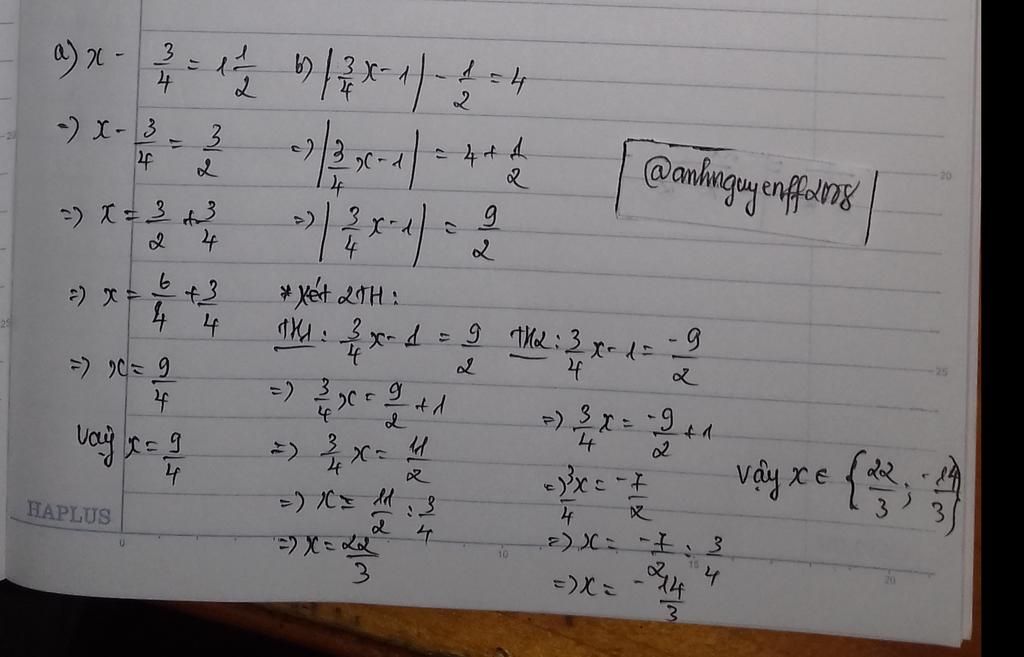 a) x - 3/4 = 1 1/2
=) x - 3/4 = 3/2
=) x = 3/2 + 3/4
=) x = 6/4 + 3/4
=) x = 9/4
vậy x = 9/4
b) |3/4 x - 1| - 1/2 = 4
=) |3/4 x - 1| = 4 + 1/2
=) |3/4 x - 1| = 9/2
* Xét 2TH:
TH1: 3/4 x - 1 = 9/2
=) 3/4 x = 9/2 + 1
=) 3/4 x = 11/2
=) x = 11/2 : 3/4
=) x = 22/3
TH2: 3/4 x - 1 = -9/2
=) 3/4 x = -9/2 + 1
=) 3/4 x = -7/2
=) x = -7/2 : 3/4
=) x = -14/3
Vậy x ∈ {22/3 ; -14/3}
@anhnguyenff2008
HAPLUS
0
10
15
20
20
25